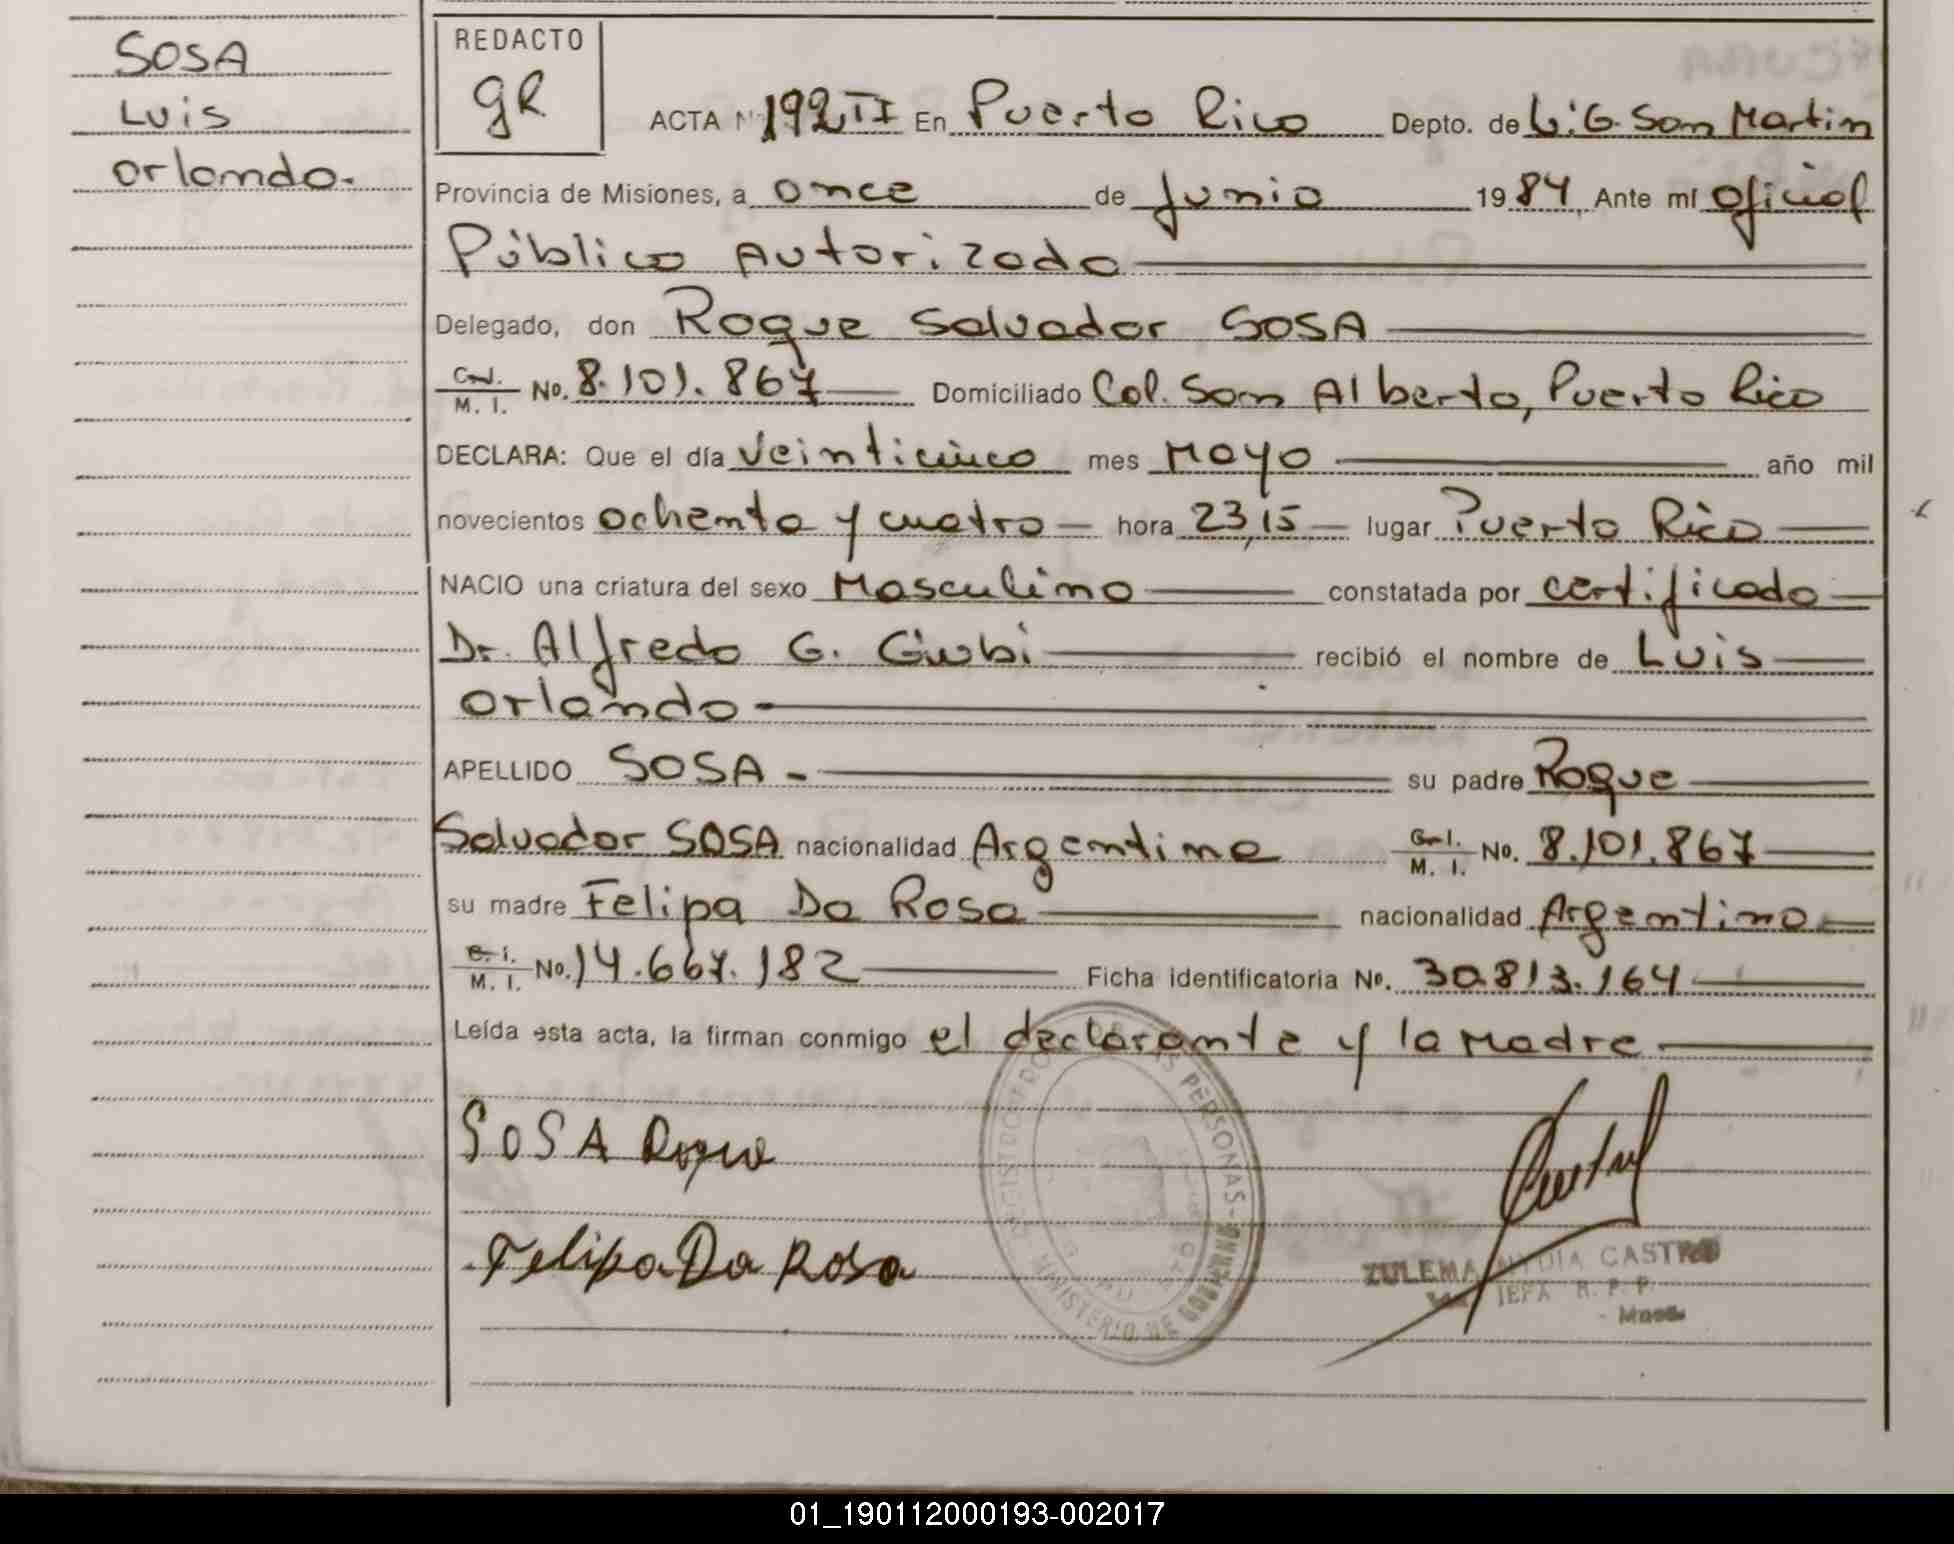 SOSA
Luis
Orlando.
REDACTO
gR
ACTA Nº 192 II En Puerto Rico Depto. de L.G. San Martin
Provincia de Misiones, a once de Junio 1984, Ante mí Oficial
Público Autorizado
Delegado, don Roque Salvador SOSA
M. I. No. 8.101.867 Domiciliado Col. San Alberto, Puerto Rico
DECLARA: Que el día veinticinco mes Mayo año mil
novecientos ochenta y cuatro hora 23,15 lugar Puerto Rico
NACIO una criatura del sexo Masculino constatada por certificado
Dr. Alfredo G. recibió el nombre de Luis
Orlando
APELLIDO SOSA su padre Roque
Salvador SOSA nacionalidad Argentina M. I. No. 8.101.867
su madre Felipa Da Rosa nacionalidad Argentina
M. I. No. 14.667.182 Ficha identificatoria No. 30.813.164
Leída esta acta, la firman conmigo el declarante y la Madre
SOSA Roque
Felipa Da Rosa
REGISTRO PERSONAS
MINISTERIO DE GOBIERNO
ZULEMA CASTRO
R. P. P.
01_190112000193-002017